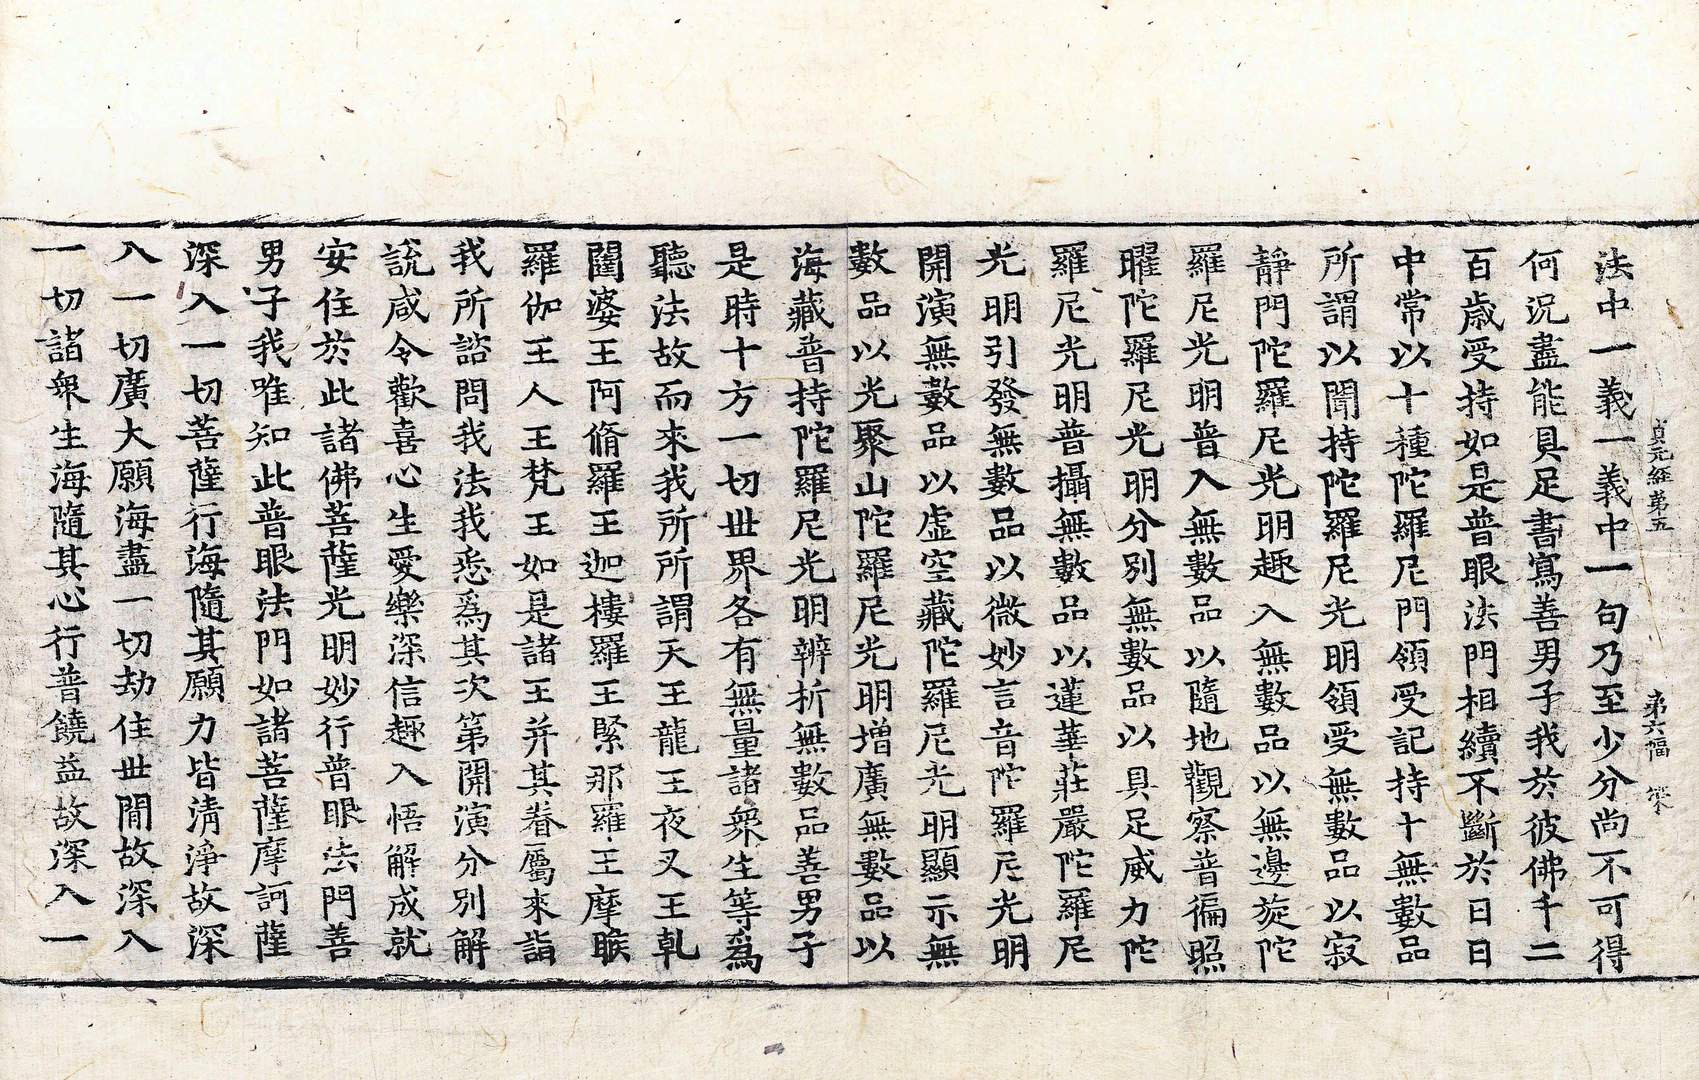 貞元經第五 第六幅
法中一義一義中一句乃至少分尚不可得
何況盡能具足書寫善男子我於彼佛千二
百歲受持如是普眼法門相續不斷於日日
中常以十種陀羅尼門領受記持十無數品
所謂以聞持陀羅尼光明領受無數品以寂
靜門陀羅尼光明趣入無數品以無邊旋陀
羅尼光明普入無數品以隨地觀察普徧照
曜陀羅尼光明分別無數品以具足威力陀
羅尼光明普攝無數品以蓮華莊嚴陀羅尼
光明引發無數品以微妙言音陀羅尼光明
開演無數品以虛空藏陀羅尼光明顯示無
數品以光聚山陀羅尼光明增廣無數品以
海藏普持陀羅尼光明辨析無數品善男子
是時十方一切世界各有無量諸衆生等爲
聽法故而來我所所謂天王龍王夜叉王乹
闥婆王阿脩羅王迦樓羅王緊那羅王摩睺
羅伽王人王梵王如是諸王并其眷屬來詣
我所諮問我法我悉爲其次第開演分別解
說咸令歡喜心生愛樂深信趣入悟解成就
安住於此諸佛菩薩光明妙行普眼法門善
男子我唯知此普眼法門如諸菩薩摩訶薩
深入一切菩薩行海隨其願力皆清淨故深
入一切廣大願海盡一切劫住世間故深入
一切諸衆生海隨其心行普饒益故深入一